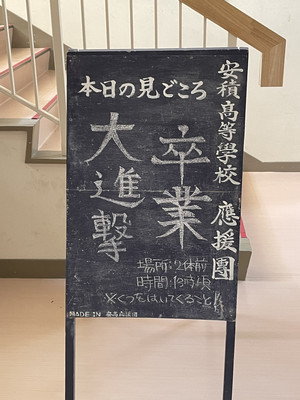 安積高等學校 應援團
本日の見どころ
卒業
大進撃
場所:2体前
時間:18時頃
※くつをはいてくること
MADE IN 安高応援団